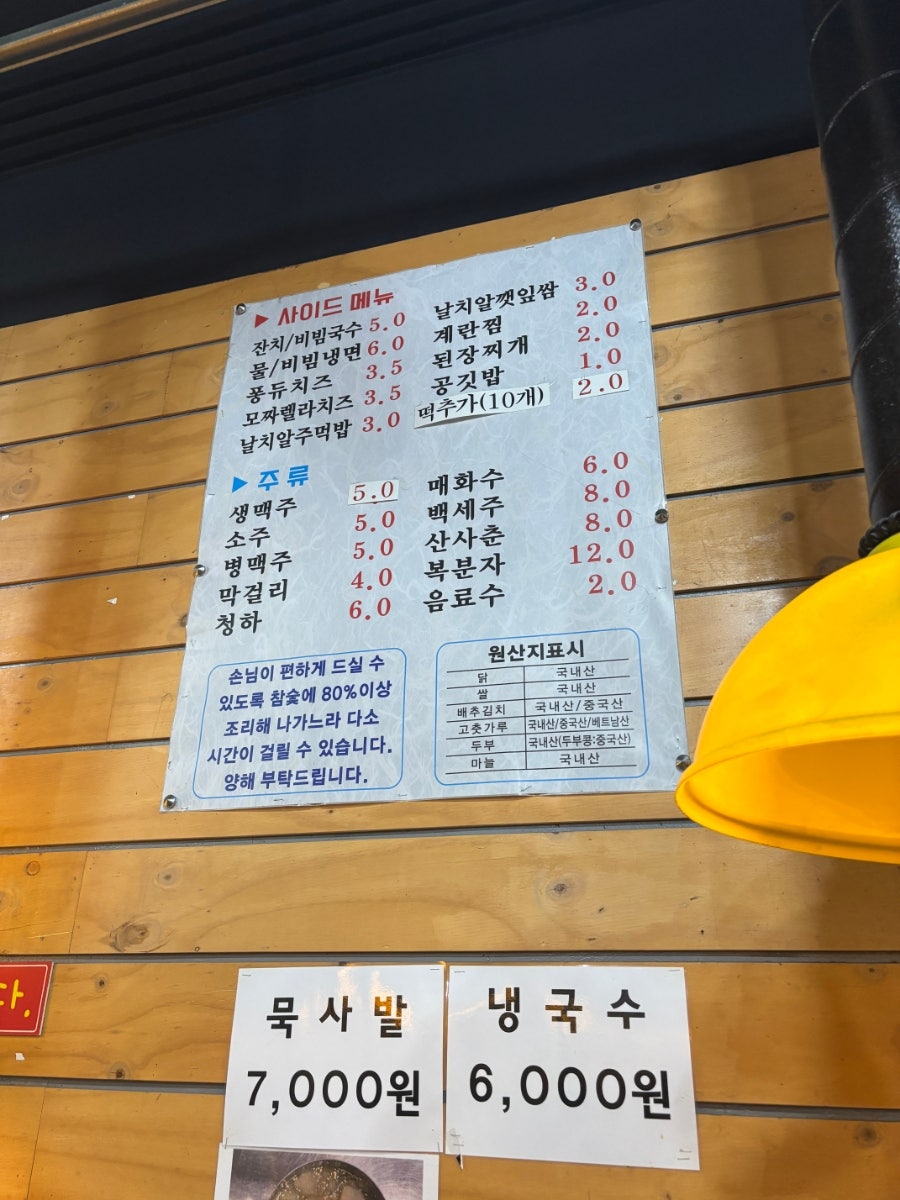 ▶ 사이드 메뉴
잔치/비빔국수 5.0
물/비빔냉면 6.0
퐁듀치즈 3.5
모짜렐라치즈 3.5
날치알주먹밥 3.0
날치알깻잎쌈 3.0
계란찜 2.0
된장찌개 2.0
공깃밥 1.0
떡추가(10개) 2.0
▶ 주류
생맥주 5.0
소주 5.0
병맥주 5.0
막걸리 4.0
청하 6.0
매화수 6.0
백세주 8.0
산사춘 8.0
복분자 12.0
음료수 2.0
손님이 편하게 드실 수
있도록 참숯에 80%이상
조리해 나가느라 다소
시간이 걸릴 수 있습니다.
양해 부탁드립니다.
원산지표시
닭 국내산
쌀 국내산
배추김치 국내산/중국산
고춧가루 국내산/중국산/베트남산
두부 국내산(두부콩:중국산)
마늘 국내산
다.
묵사발
7,000원
냉국수
6,000원